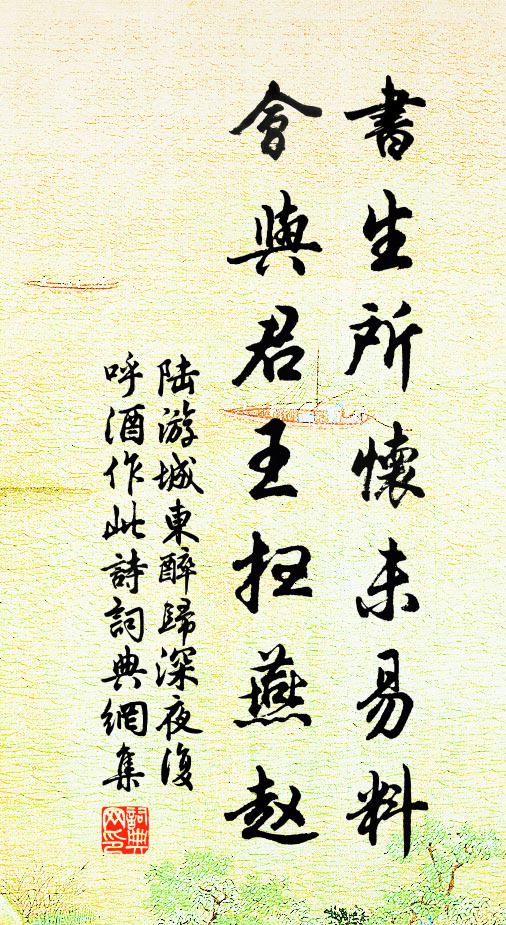 書生所懷未易料
會與君王掃燕赵
陆游城東醉歸深夜復
呼酒作此詩詞典網集
詞典网印